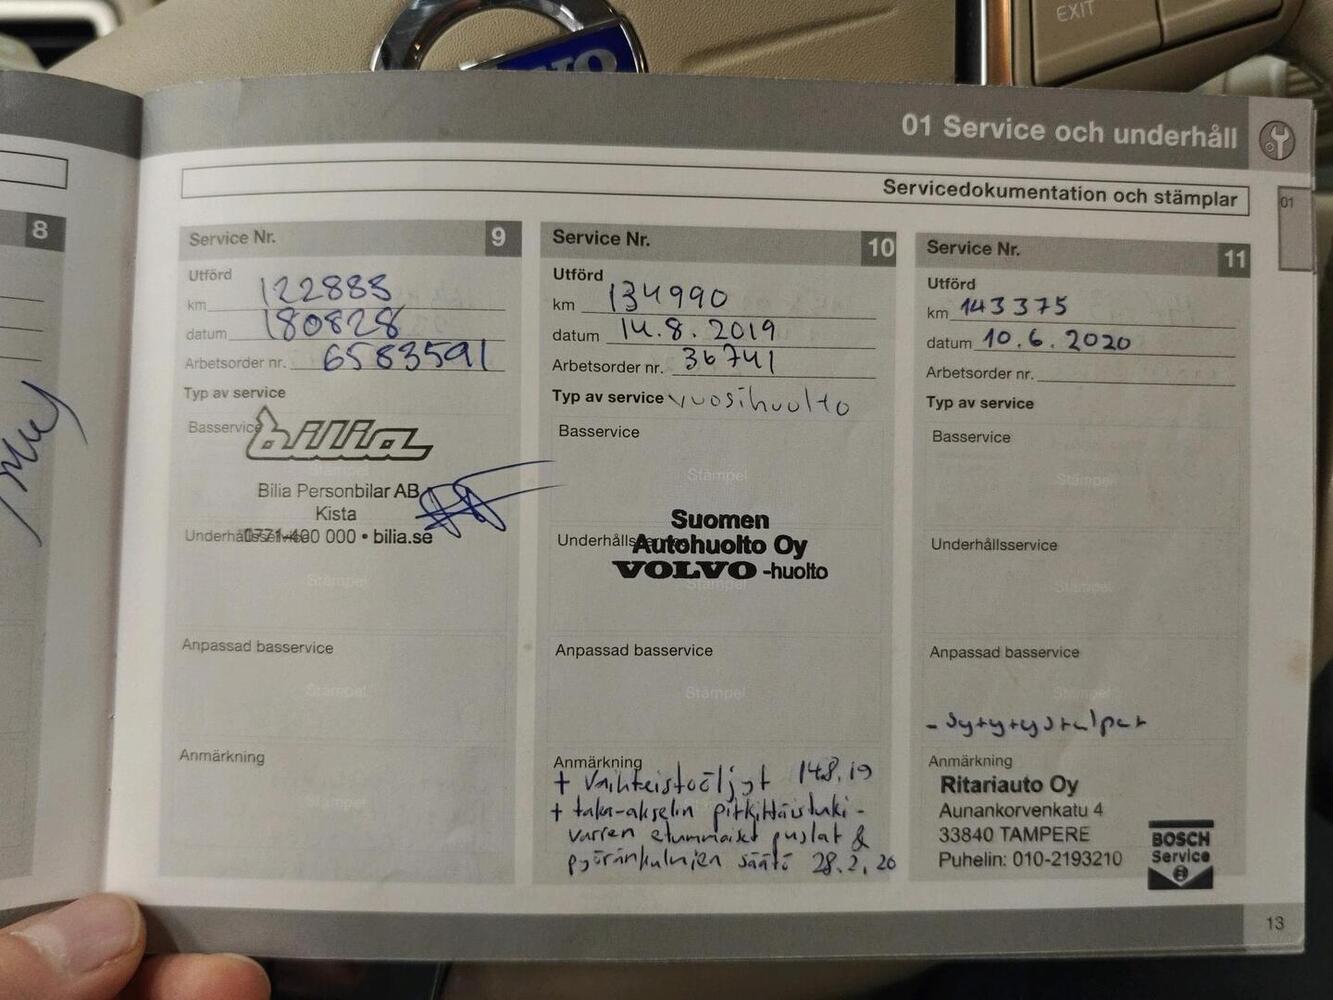 EXIT
VOLVO
01 Service och underhåll
Servicedokumentation och stämplar
01
8
Service Nr. 9
Utförd
km 122885
datum 180828
Arbetsorder nr. 6583591
Typ av service
Basservice
bilia
Stämpel
Bilia Personbilar AB
Kista
Underhållsservice
0771-400 000 • bilia.se
Stämpel
Anpassad basservice
Stämpel
Anmärkning
Stämpel
Service Nr. 10
Utförd
km 134990
datum 14.8.2019
Arbetsorder nr. 36741
Typ av service vuosihuolto
Basservice
Stämpel
Suomen
Underhållsservice
Autohuolto Oy
VOLVO -huolto
Stämpel
Anpassad basservice
Stämpel
Anmärkning
+ Vaihteistoöljyt 14.8.19
+ taka-akselin pitkittäistuki-
varren etummaiset puslat &
pyöränkulmien säätö 28.2.20
Service Nr. 11
Utförd
km 143375
datum 10.6.2020
Arbetsorder nr.
Typ av service
Basservice
Stämpel
Underhållsservice
Stämpel
Anpassad basservice
Stämpel
- sytytystulpat
Anmärkning
Ritariauto Oy
Aunankorvenkatu 4
33840 TAMPERE
Puhelin: 010-2193210
BOSCH
Service
13